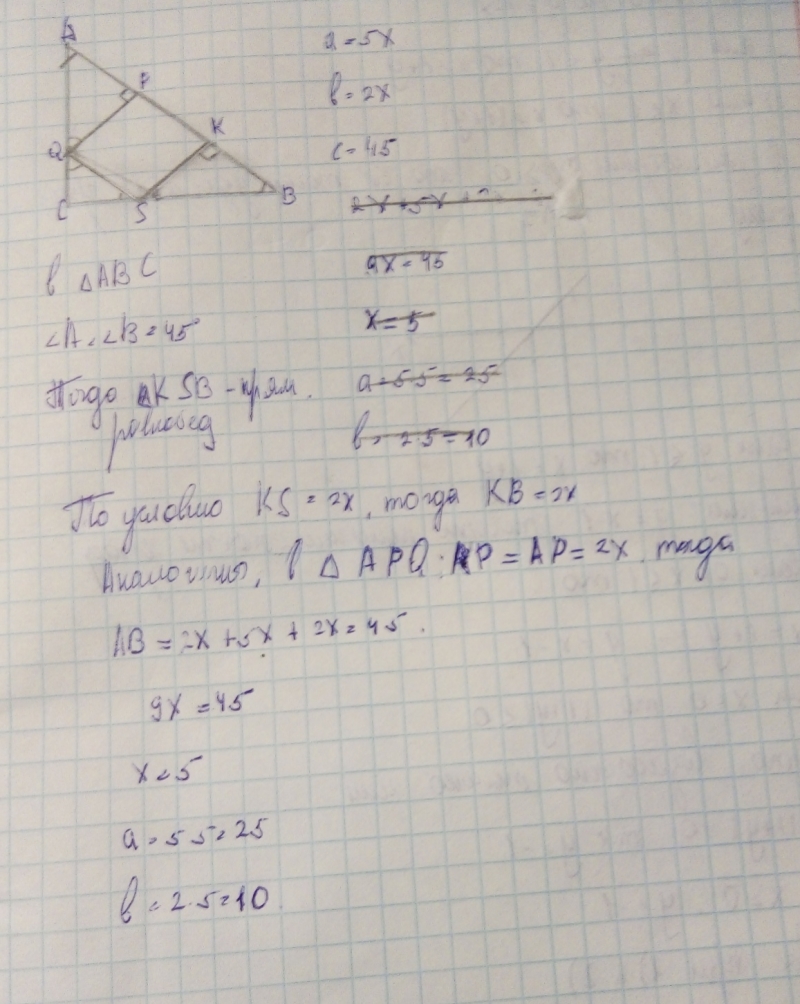 A
P
K
Q
C
S
B
a = 5x
b = 2x
c = 45
9x = 45
x = 5
a = 5 5 = 25
b = 2.5 = 10
В △ABC
∠A = ∠B = 45
Тогда △KSB - прям.
равнобед
По условию KS = 2x, тогда KB = 2x
Аналогично, в △ APQ: AP = 2x. тогда
AB = 2x + 5x + 2x = 45.
9x = 45
x = 5
a = 5 5 = 25
b = 2.5 = 10.